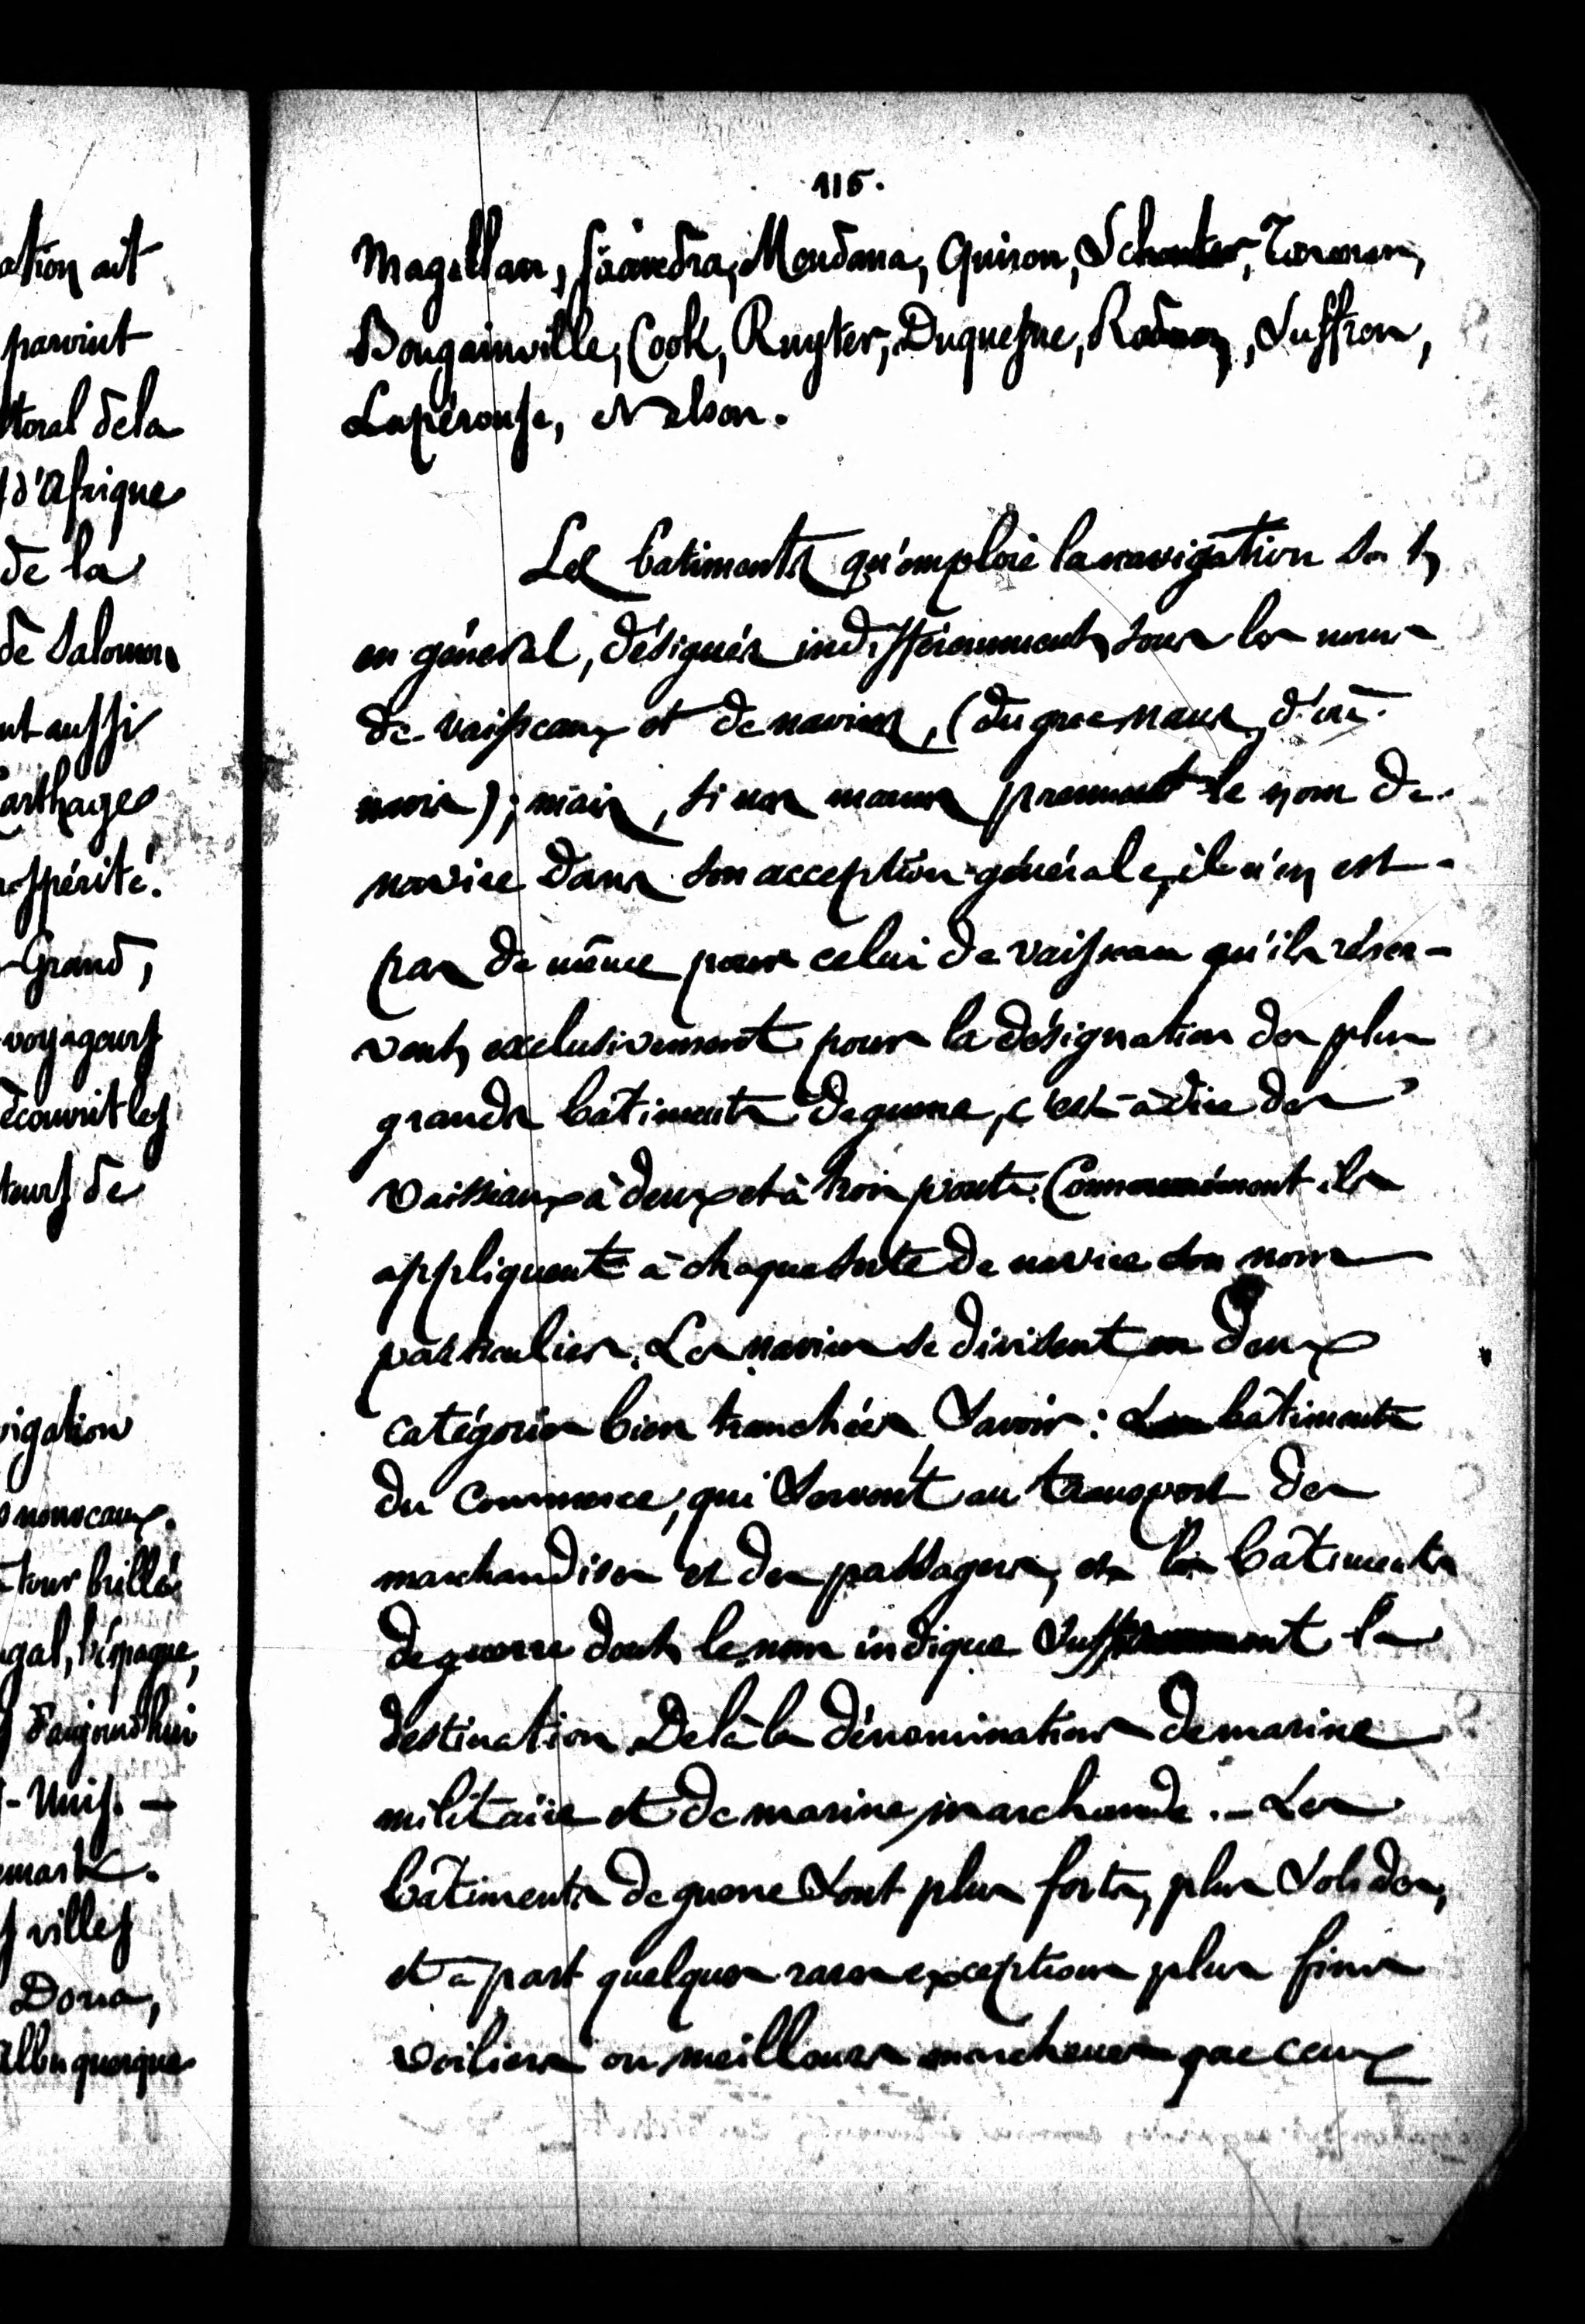 ation ait
parvint
ttoral dela
d'Afrique
de la
de Salomon
nt aussi
Carthage
ospérité.
-Grand,
voyageurs
écouvrit les
teurs de
vigation
nouveaux.
tour brillé
gal, l'éspagne,
d'aujourd'hui
-Unis. —
emark.
s villes
Doria,
Albuquerque
115.
Magellan, Saavedra, Mendana, Quiros, Schouter, Tasman,
Bougainville, Cook, Ruyter, Duquesne, Rodney, Suffren,
Lapérouse, Nelson.
Les batiments qu'emploie la navigation sont
en général, désignés indifféremment sous les noms
de vaisseaux et de navires, (du grec naus, d'où
navis); mais, si nos marins prennent le nom de
navire dans son acception générale, il n'en est
pas de même pour celui de vaisseau qu'ils réser-
vent exclusivement pour la désignation des plus
grands bâtiments de guerre, c'est-à dire des
vaisseaux à deux et à trois ponts. Communément ils
appliquent à chaque sorte de navire son nom
particulier. Les navires se divisent en deux
catégories bien tranchées Savoir: Les bâtiments
du Commerce, qui servent au transport des
marchandises et des passagers, et les bâtiments
de guerre dont le nom indique suffisamment la
destination. De là la dénomination de marine
militaire et de marine marchande. — Les
bâtiments de guerre sont plus forts, plus solides,
et à part quelques rares exceptions plus fins
voiliers ou meilleurs marcheurs que ceux